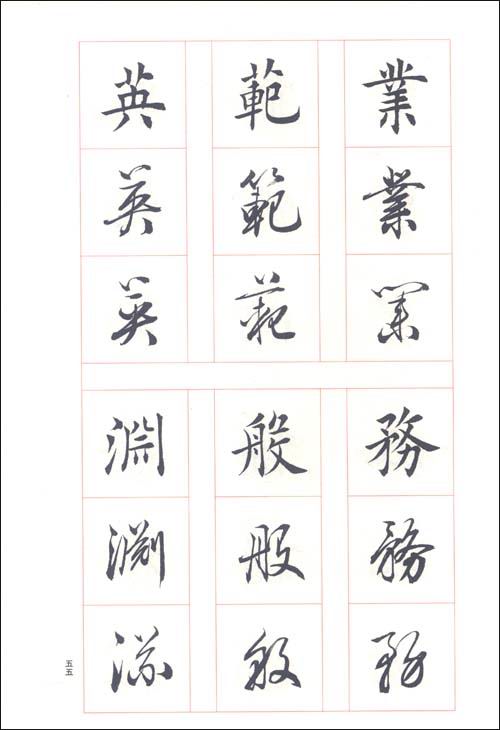 業業業
範範範
英英英
務務務
般般般
淵淵淵
五五